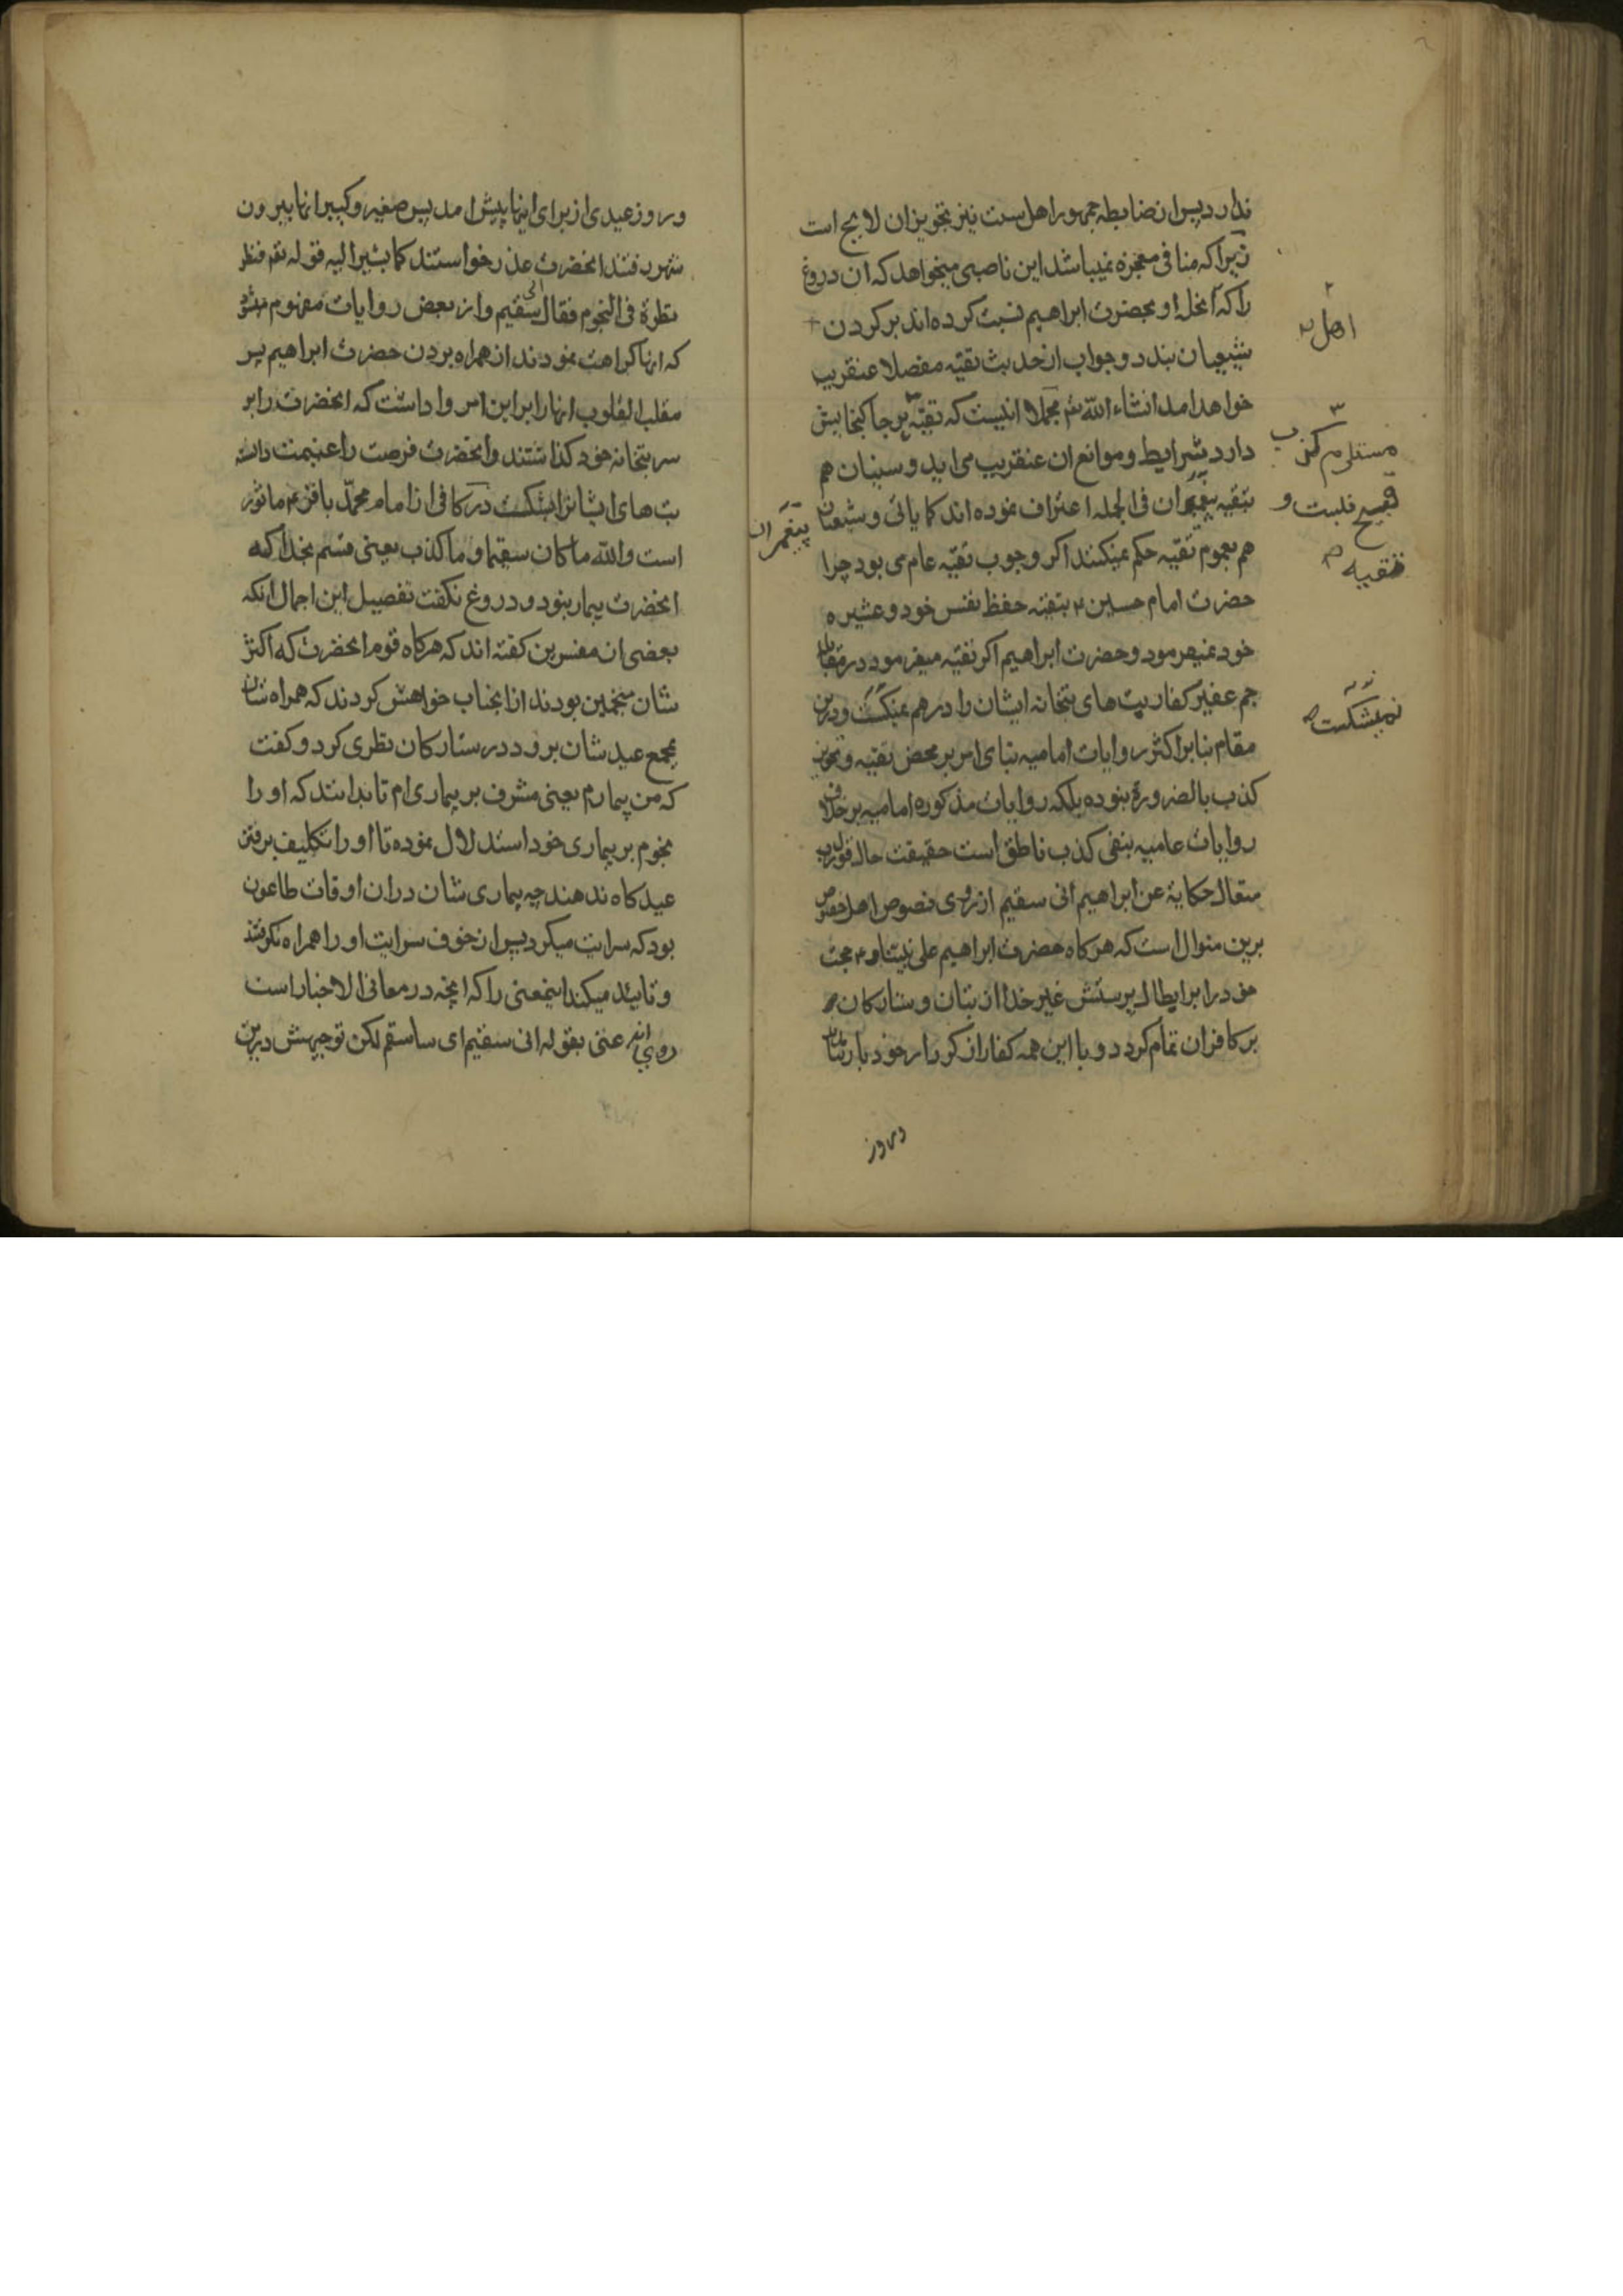 ندارد پس از ضابطه جمهور اهل سنت نیز تجویز ان لایح است
زیرا که منافی معجزه نمیباشد این ناصبی میخواهد که ان دروغ
را که اهل او بحضرت ابراهیم نسبت کرده اند بر کردن
شیعیان بندد و جواب از حدیث تقیه مفصلا عنقریب
خواهد امد انشاء الله تع مجملا انیست که تقیه هر جا کنجایش
دارد شرایط و موانع ان عنقریب می اید و سنیان هم
بتقیه پیغمبران فی الجمله اعتراف نموده اند کما یاتی و شیعیان
هم بعموم تقیه حکم نمیکنند اکر وجوب تقیه عام می بود چرا
حضرت امام حسین ع بتقیه حفظ نفس خود و عشیره
خود نمیفرمود و حضرت ابراهیم اکر تقیه میفرمود در مقابل
جم غفیر کفار بت های بتخانه ایشان را در هم نمیشکست و درین
مقام بنا بر اکثر روایات امامیه بنای امر بر محض تقیه و تجویز
کذب بالضرورة نبوده بلکه روایات مذکوره امامیه بر خلاف
روایات عامیه بنفی کذب ناطق است حقیقت حال قول رب
متعال حکایة عن ابراهیم انی سقیم از روی نصوص اهل خصوص
برین منوال است که هرکاه حضرت ابراهیم علی نبینا و ع حجت
خود را بر ابطال پرستش غیر خدا از بتان و ستارکان
بر کافران تمام کرد و با این همه کفار از کردار خود باز
و روز
اهل
مستلزم کذب
قبیح فلیست و
تقیه
پیغمبران
نمیشکست
و روز عیدی از برای اینها پیش امد پس صغیر و کبیر انها بیرون
شهر رفتند انحضرت عذر خواستند کما یشیر الیه قوله تعم فنظر
نظرة فی النجوم فقال انی سقیم و از بعض روایات مفهوم میشود
که انها کراهت نمودند از همراه بردن حضرت ابراهیم پس
مقلب القلوب انها را بر این امر واداشت که انحضرت را بر
سر بتخانه خود کذاشتند و انحضرت فرصت را غنیمت دانسته
بت های ایشانرا بشکست در کافی از امام محمد باقر ع ماثور
است والله ما کان سقیما و ما کذب یعنی قسم بخدا که
انحضرت بیمار نبود و دروغ نکفت تفصیل این اجمال انکه
بعضی از مفسرین کفته اند که هرکاه قوم انحضرت که اکثر
شان منجمین بودند از انجناب خواهش کردند که همراه شان
بمجمع عید شان برود در ستارکان نظری کرد و کفت
که من بیمارم یعنی مشرف بر بیماری ام تا بدانند که او را
نجوم بر بیماری خود استدلال نموده تا او را تکلیف برفتن
عیدکاه ندهند چه بیماری شان دران اوقات طاعون
بود که سرایت میکرد پس از خوف سرایت او را همراه نکرفتند
و تایید میکند اینمعنی را که انچه در معانی الاخبار است
روی انه عنی بقوله انی سقیم ای ساسقم لکن توجیهش درین